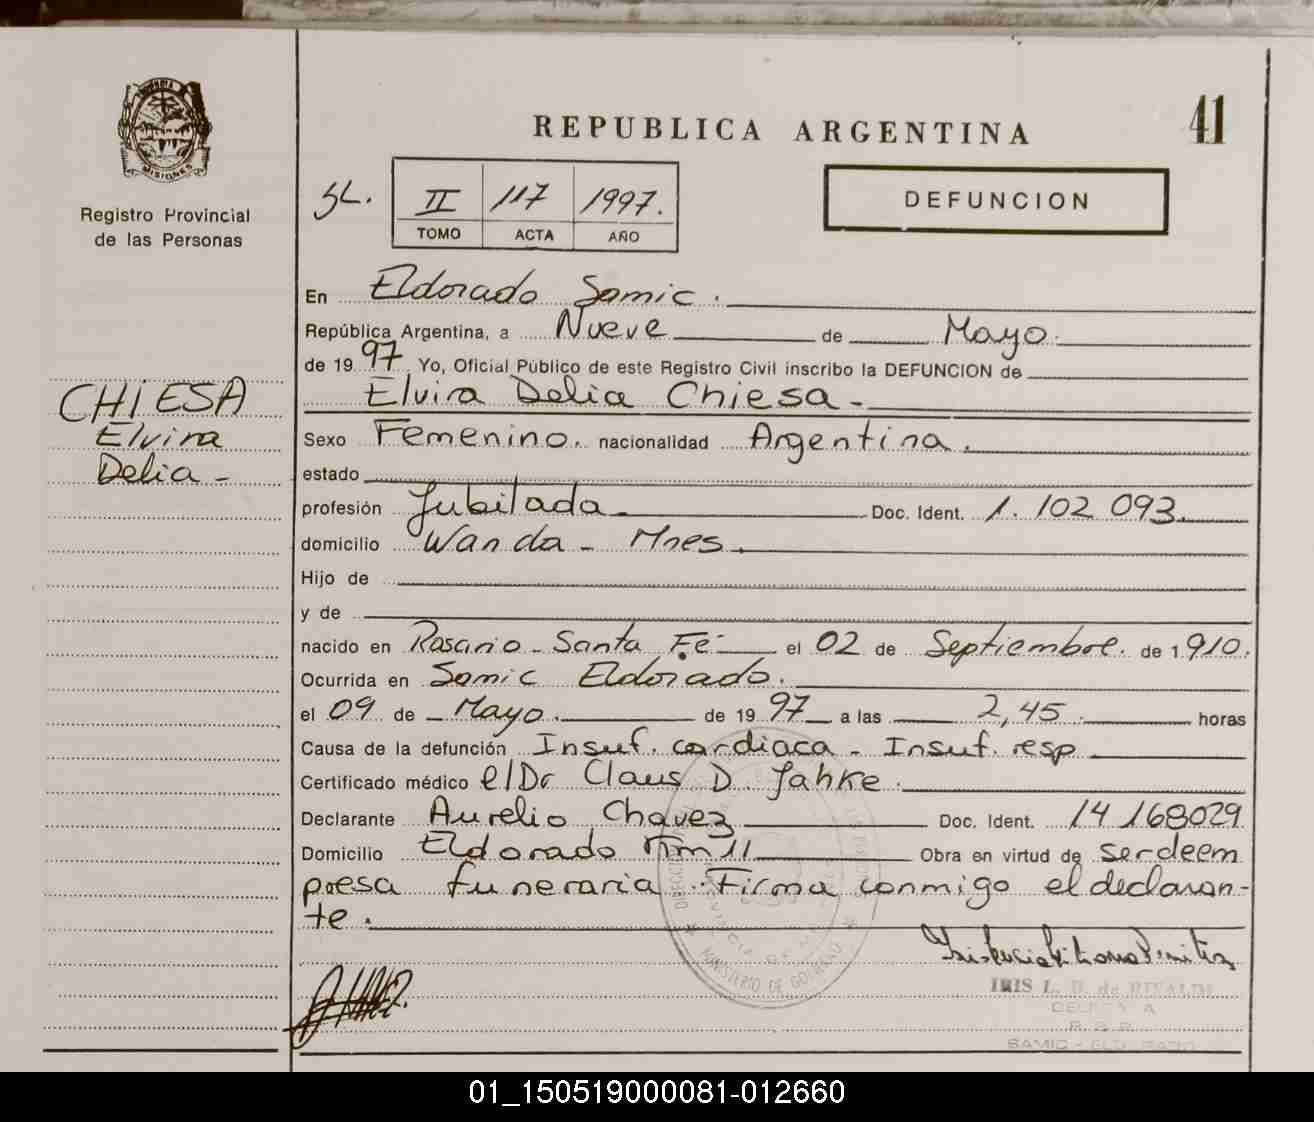 REPUBLICA ARGENTINA
41
MISIONES
Registro Provincial
de las Personas
II 117 1997.
TOMO ACTA AÑO
DEFUNCION
CHIESA
Elvira
Delia -
En Eldorado Samic.
República Argentina, a Nueve de Mayo.
de 1997 Yo, Oficial Público de este Registro Civil inscribo la DEFUNCION de
Elvira Delia Chiesa -
Sexo Femenino. nacionalidad Argentina.
estado
profesión Jubilada Doc. Ident. 1.102 093
domicilio Wanda - Mnes.
Hijo de
y de
nacido en Rosario - Santa Fé el 02 de Septiembre. de 1.910.
Ocurrida en Samic Eldorado.
el 09 de Mayo. de 1997 a las 2,45 horas
Causa de la defunción Insuf. cardiaca - Insuf. resp
Certificado médico el Dr Claus D. Jahke.
Declarante Aurelio Chavez Doc. Ident. 14 168029
Domicilio Eldorado Km 11 Obra en virtud de ser de em
presa funeraria. Firma conmigo el declaran-
te.
MINISTERIO DE GOBIERNO
IRIS L. B. de RIVALDI
SAMIC - ELDORADO
01_150519000081-012660